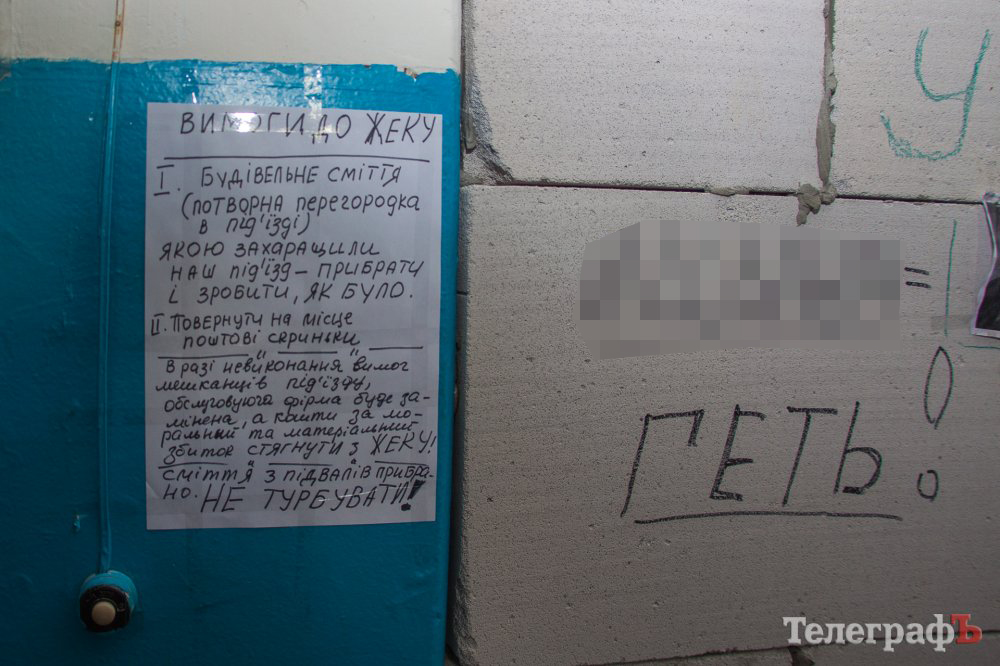 ВИМОГИ ДО ЖЕКУ
I. БУДІВЕЛЬНЕ СМІТТЯ
(ПОТВОРНА ПЕРЕГОРОДКА
В ПІД'ЇЗДІ)
ЯКОЮ ЗАХАРАЩИЛИ
НАШ ПІД'ЇЗД – ПРИБРАТИ
І ЗРОБИТИ, ЯК БУЛО.
II. ПОВЕРНУТИ НА МІСЦЕ
ПОШТОВІ СКРИНЬКИ
В РАЗІ НЕВИКОНАННЯ ВИМОГ
МЕШКАНЦІВ ПІД'ЇЗДУ,
ОБСЛУГОВУЮЧА ФІРМА БУДЕ ЗА-
МІНЕНА, А КОШТИ ЗА МО-
РАЛЬНИЙ ТА МАТЕРІАЛЬНИЙ
ЗБИТОК СТЯГНУТИ З ЖЕКУ!
СМІТТЯ З ПІДВАЛІВ ПРИБРА-
НО. НЕ ТУРБУВАТИ!
У
=
ГЕТЬ!
ТелеграфЪ